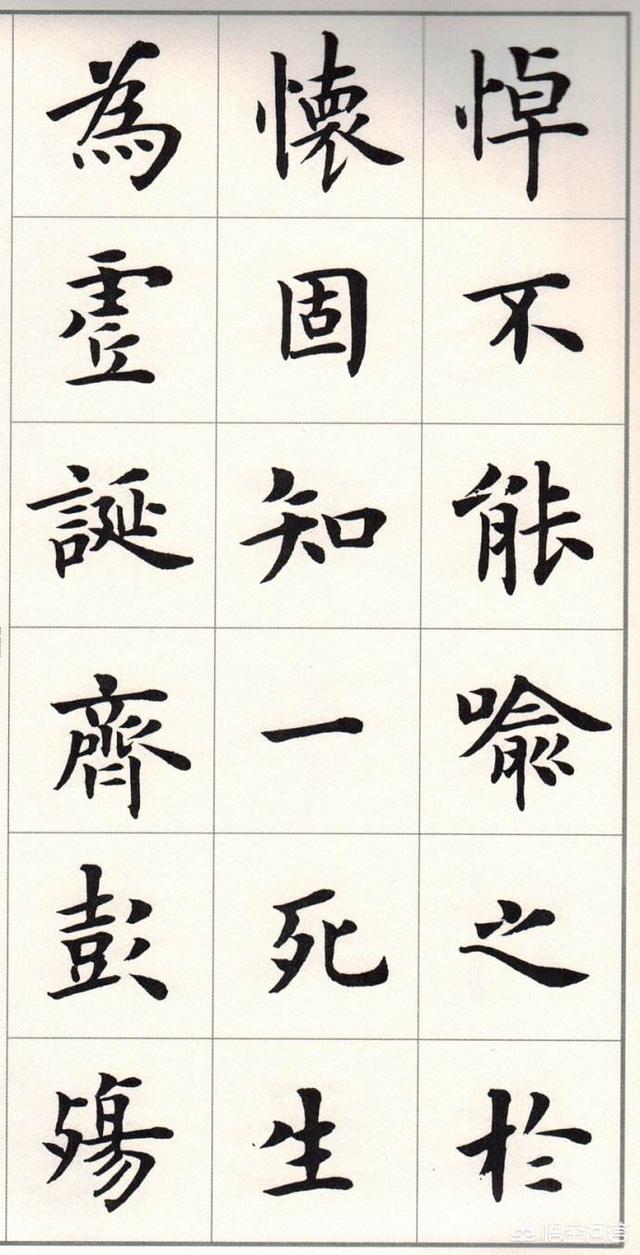 悼不能喻之於
懷固知一死生
為虛誕齊彭殤
悟空问答